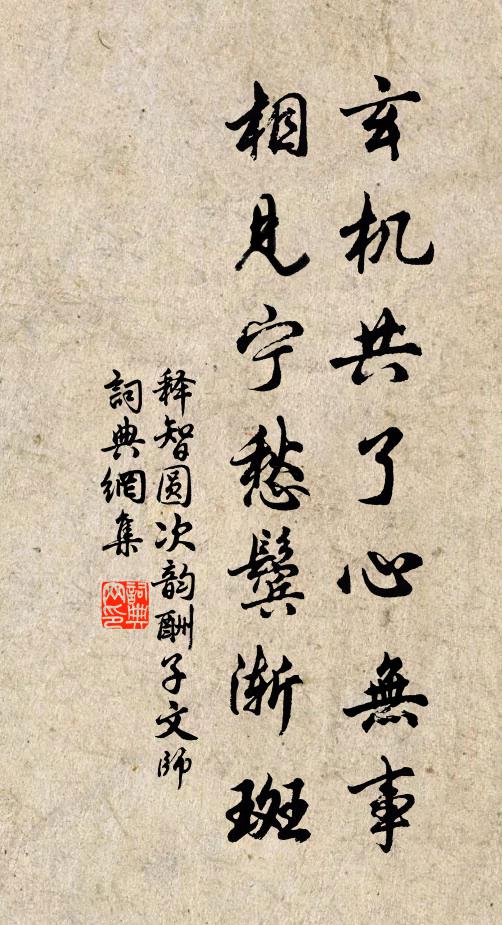 玄机共了心無事
相見宁愁鬓渐斑
释智圆次韵酬子文师
詞典網集
詞典
网印